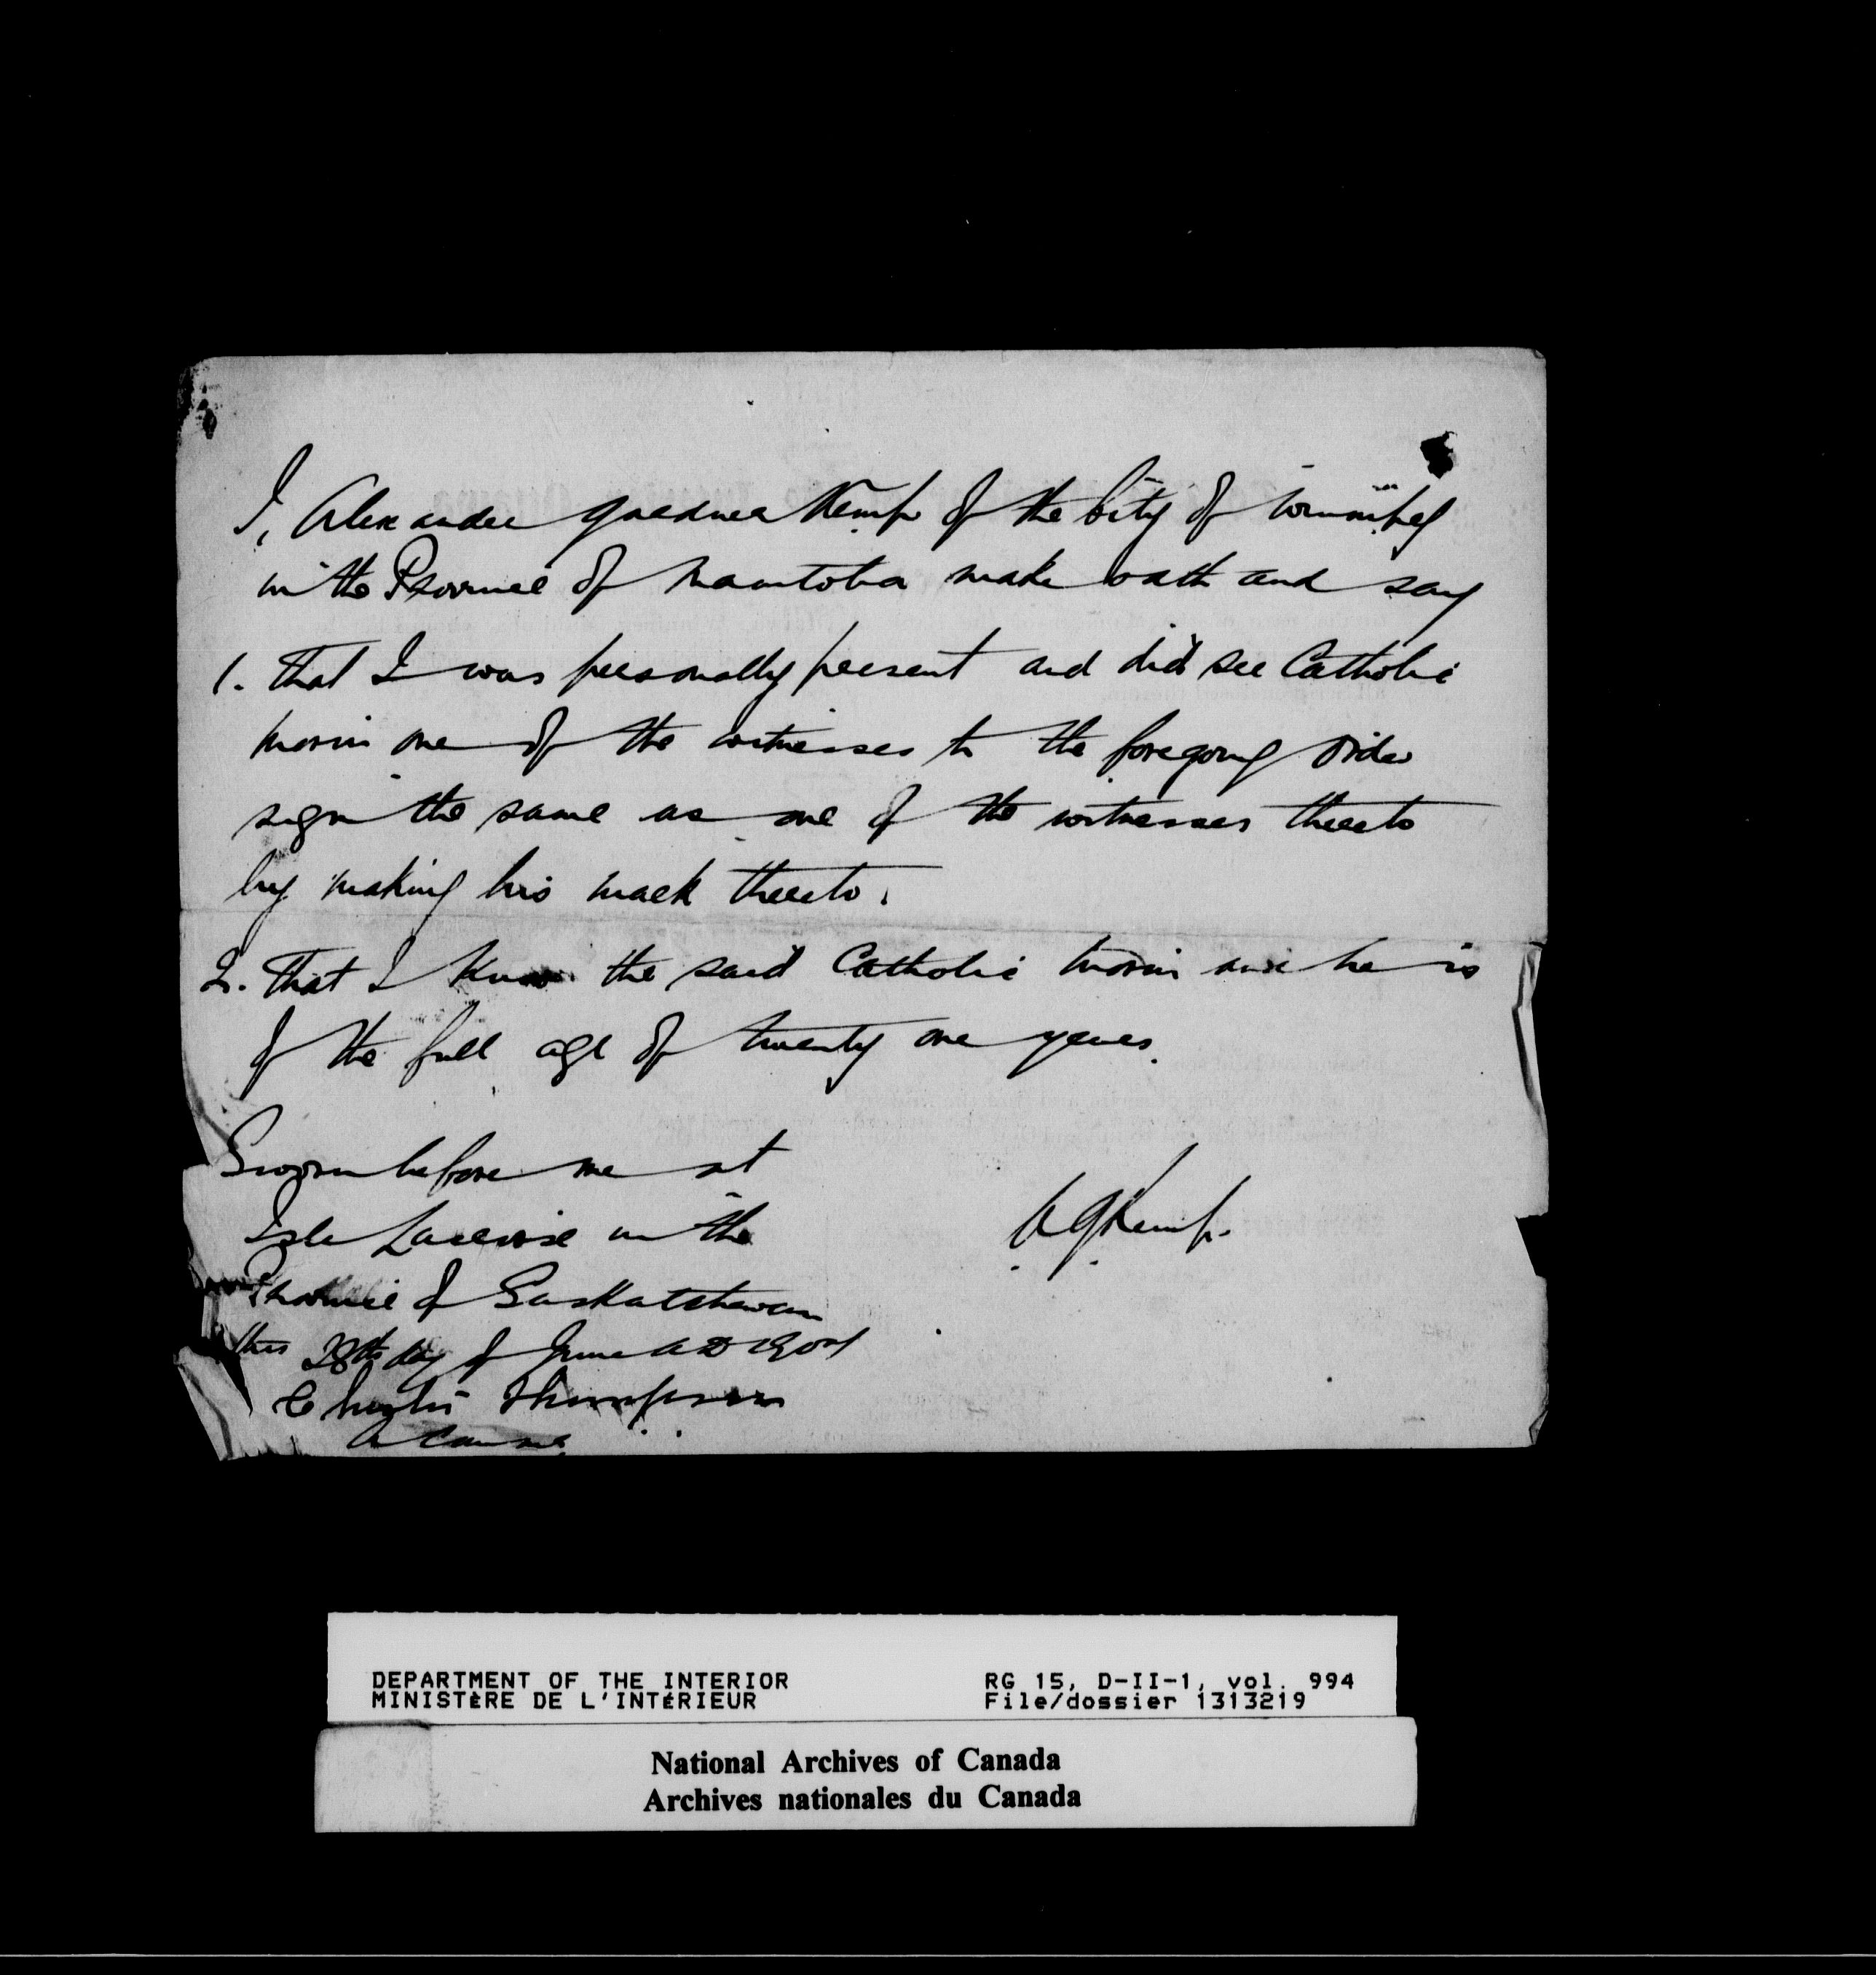 I, Alexander Gardner Kemp of the City of Winnipeg
in the Province of Manitoba make oath and say
1. That I was personally present and did see Catholic
Morin one of the witnesses to the foregoing order
sign the same as one of the witnesses thereto
by making his mark thereto.
2. That I know the said Catholic Morin and he is
of the full age of twenty one years.
Sworn before me at
Isle Lacrosse in the
Province of Saskatchewan
this 28th day of June AD
Thompson
A G Kemp.
DEPARTMENT OF THE INTERIOR RG 15, D-II-1, vol. 994
MINISTÈRE DE L'INTÉRIEUR File/dossier 1313219
National Archives of Canada
Archives nationales du Canada